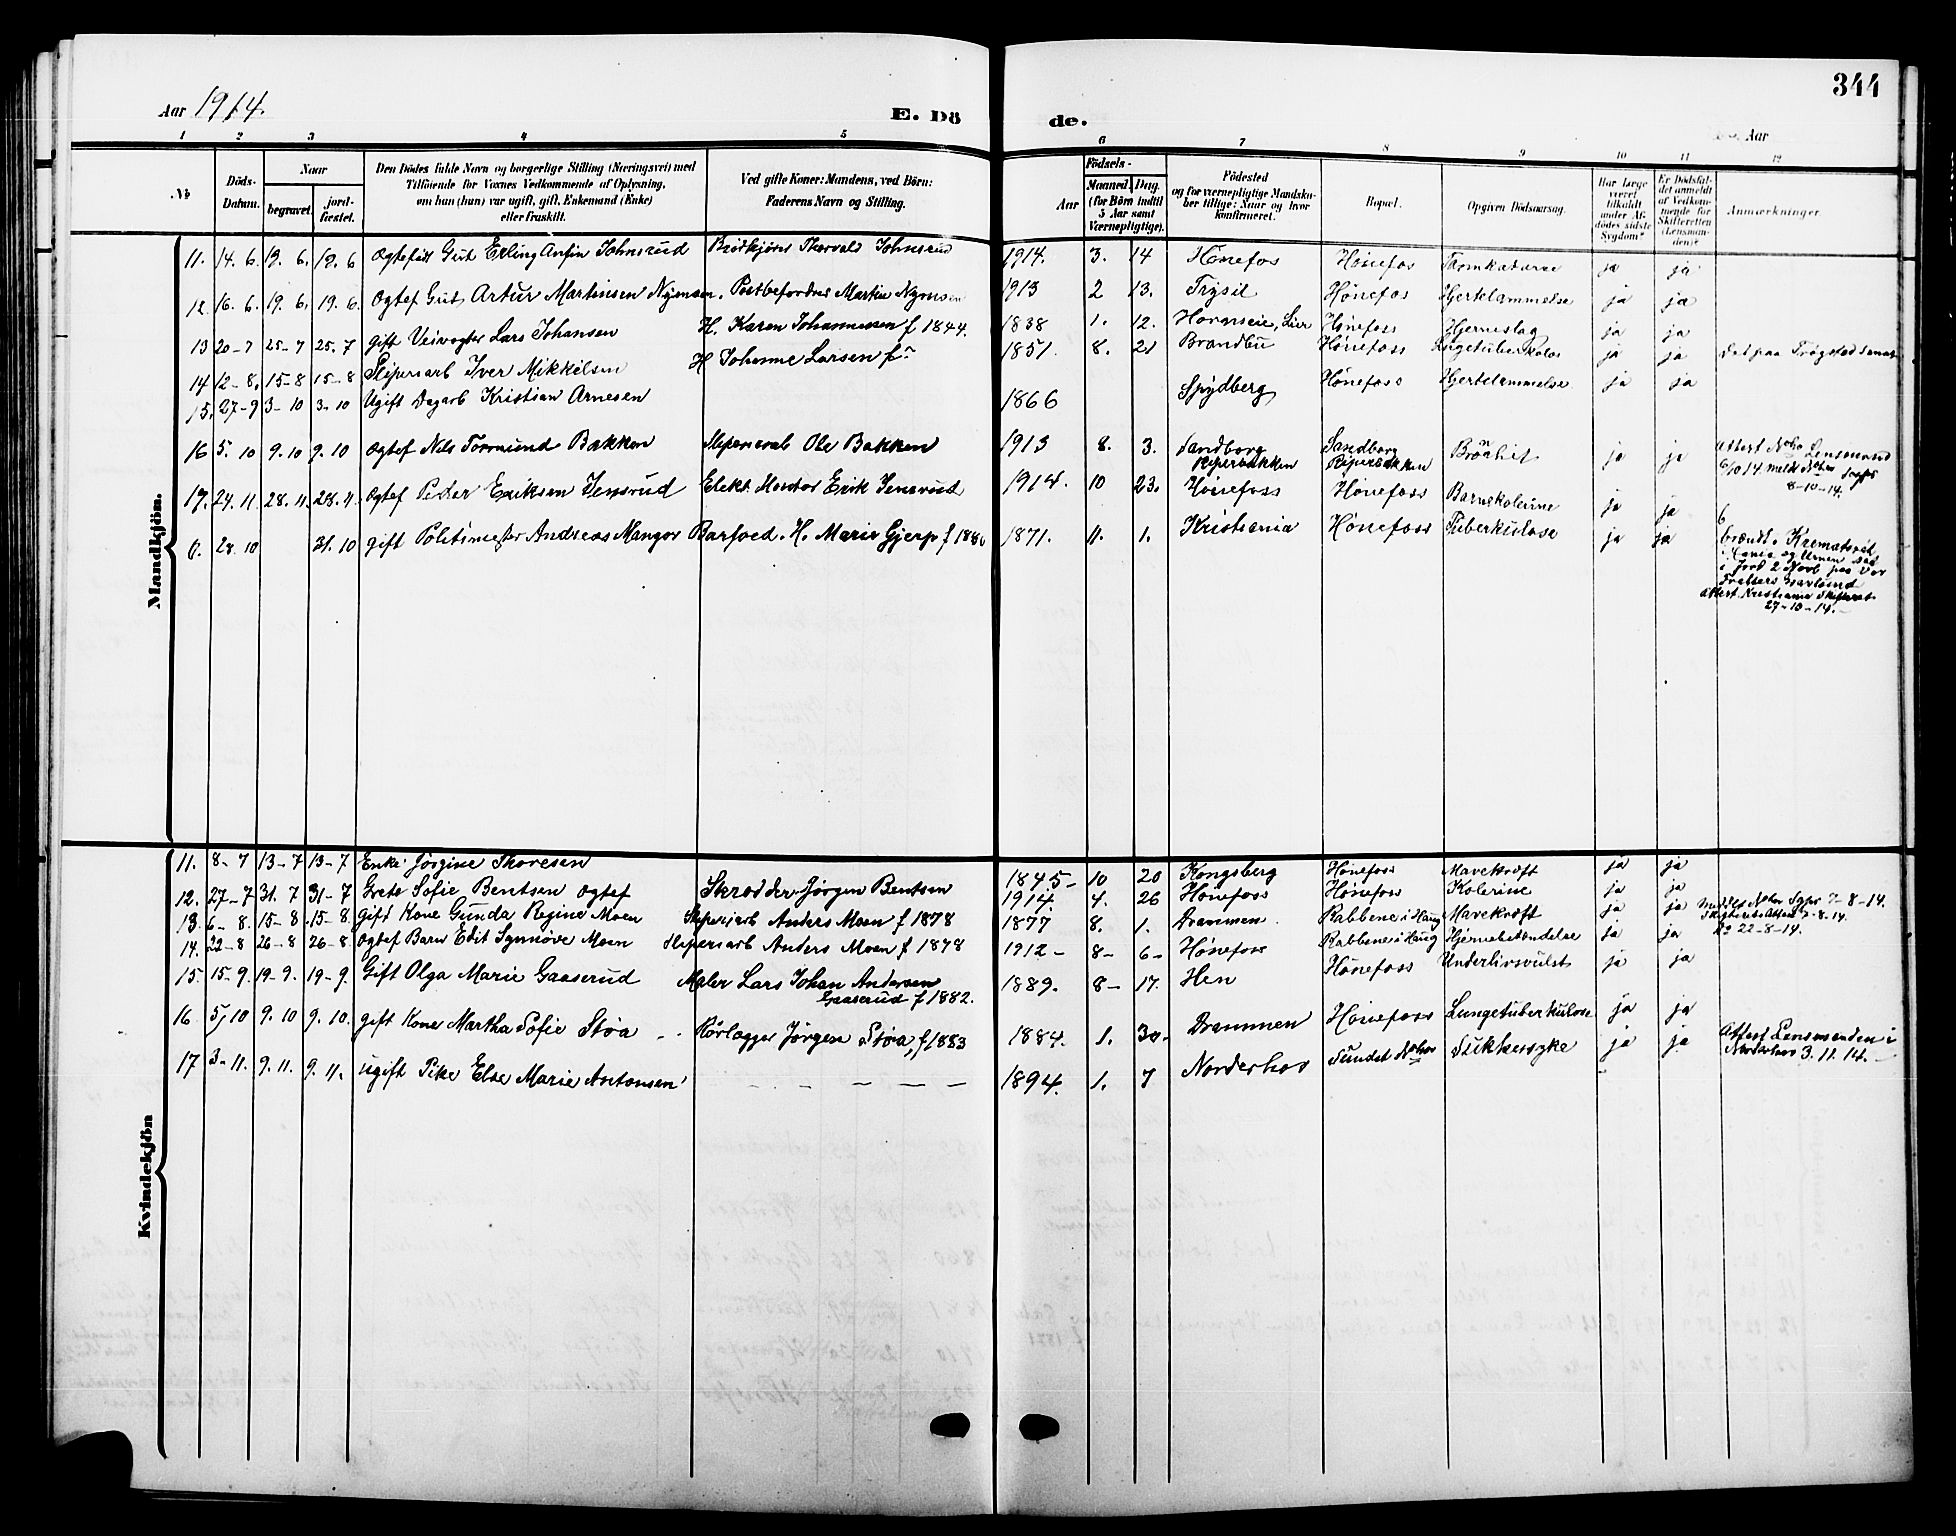 344
Aar 1914.
E. Dö
de.
Aar
1 2 3 4 5 6 7 8 9 10 11 12
No
Döds-Datum.
Naar
begravet.
jord-fæstet.
Den Dödes fulde Navn og borgerlige Stilling (Næringsvei) med
Tilföiende for Voxnes Vedkommende af Oplysning,
om han (hun) var ugift, gift, Enkemand (Enke)
eller fraskilt.
Ved gifte Koner: Mandens, ved Börn:
Faderens Navn og Stilling.
Födsels-
Aar
Maaned. Dag.
(for Börn indtil
5 Aar samt
Værnepligtige).
Födested
og for værnepligtige Mandska-
ber tillige: Naar og hvor
konfirmeret.
Bopæl.
Opgiven Dödsaarsag.
Har læge
været
tilkaldt
under Af-
dödes sidste
Sygdom?
Er Dödsfal-
det anmeldt
af Vedkom-
mende for
Skifteretten
(Lensman-
den)?
Anmærkninger
Mandkjön.
11. 14. 6. 19. 6. 19. 6 Ogtefödt Gut Erling Anfin Johnsrud Brödkjörer Thorvald Johnsrud 1914. 3. 14 Hönefos Hönefos Tarmkatarre ja ja
12. 16. 6. 19. 6. 19. 6. Ogtef Gut Artur Martinsen Nymoen. Postbefordrer Martin Nymoen 1913 2 13. Trysil Hönefos Hjertelammelse ja ja
13 20-7 25-7 25. 7 gift Veivogter Lars Johansen H. Karen Johannessen f 1844. 1838 1. 12. Hornseie, Lier Hönefoss Hjerneslag ja ja
14 12-8. 15-8 15-8 Sliperiarb Iver Mikkelsen H Johanne Larsen f. 1851. 8. 21 Brandbu Hönefoss Lungetuberkolos ja ja Död paa
15. 27-9 3-10 3-10 Ugift Dagarb Kristian Arnesen 1866 Spydberg Hönefoss Hjertelammelse ja ja
16 5. 10 9. 10 9. 10 ogtef Nils Tormund Bakken Sliperiarb Ole Bakken 1913 8. 3. Sandborg
Riperbakken Sandborg
Riperbakken Bronhit ja ja Attest Lensmand
6/10 14.
8-10-14.
17. 24. 11. 28. 11. 28. 11. ogtef Peder Eriksen Jensrud Elekt. Montör Erik Jensrud 1914. 10 23. Hönefoss Hönefoss Barnekolerine ja ja
0. 28. 10 31. 10 gift Politimester Andreas Mangor Barfoed. H. Marie Gjerp f 1880 1871. 11. 1. Kristiania Hönefoss Tuberkulose ja ja brændt i Krematoriet
i Kania og Urnen sat
i Jord 2 Novb paa Vor
Frelsers Gravlund
attest. Kristiania Skifteret
27-10-14.
Kvindekjön
11. 8-7 13-7 13-7 Enke Jörgine Thoresen 1845- 10 20 Kongsberg Hönefoss Mavekræft ja ja
12. 27-7 31. 7 31-7 Grete Sofie Bentsen ogtef Skrædder Jörgen Bentsen 1914 4. 26 Hönefoss Hönefoss Kolerine ja ja
13. 6-8. 15-8. 15-8. gift Kone Gunda Regine Moen Sliperiarb Anders Moen f 1878 1877 8. 1. Drammen Rabbene i Haug Mavekræft ja ja 7-8-14.
14. 22-8 26-8 26-8. ogtef Barn Edit Synnöve Moen Sliperiarb Anders Moen f 1878 1912- 8- 6- Hönefoss Rabbene i Haug Hjernebetændelse ja ja Do 22-8-14.
15. 15-9. 19-9. 19-9. Gift Olga Marie Gaaserud Maler Lars Johan Andersen
Gaaserud f 1882. 1889. 8- 17. Hen Hönefoss Underlivsvulst ja ja
16 5/10 9. 10 9. 10. gift Kone Martha Sofie Stöa - - Rörlægger Jörgen Stöa, f 1883 1884. 1. 30. Drammen Hönefoss Lungetuberkulose ja ja
17 3-11. 9. 11. 9. 11. ugift Pike Else Marie Antonsen 1894. 1. 7 Norderhov Sundet Nohov Sukkersyke ja ja Attest Lensmanden i
Norderhov 3. 11. 14.